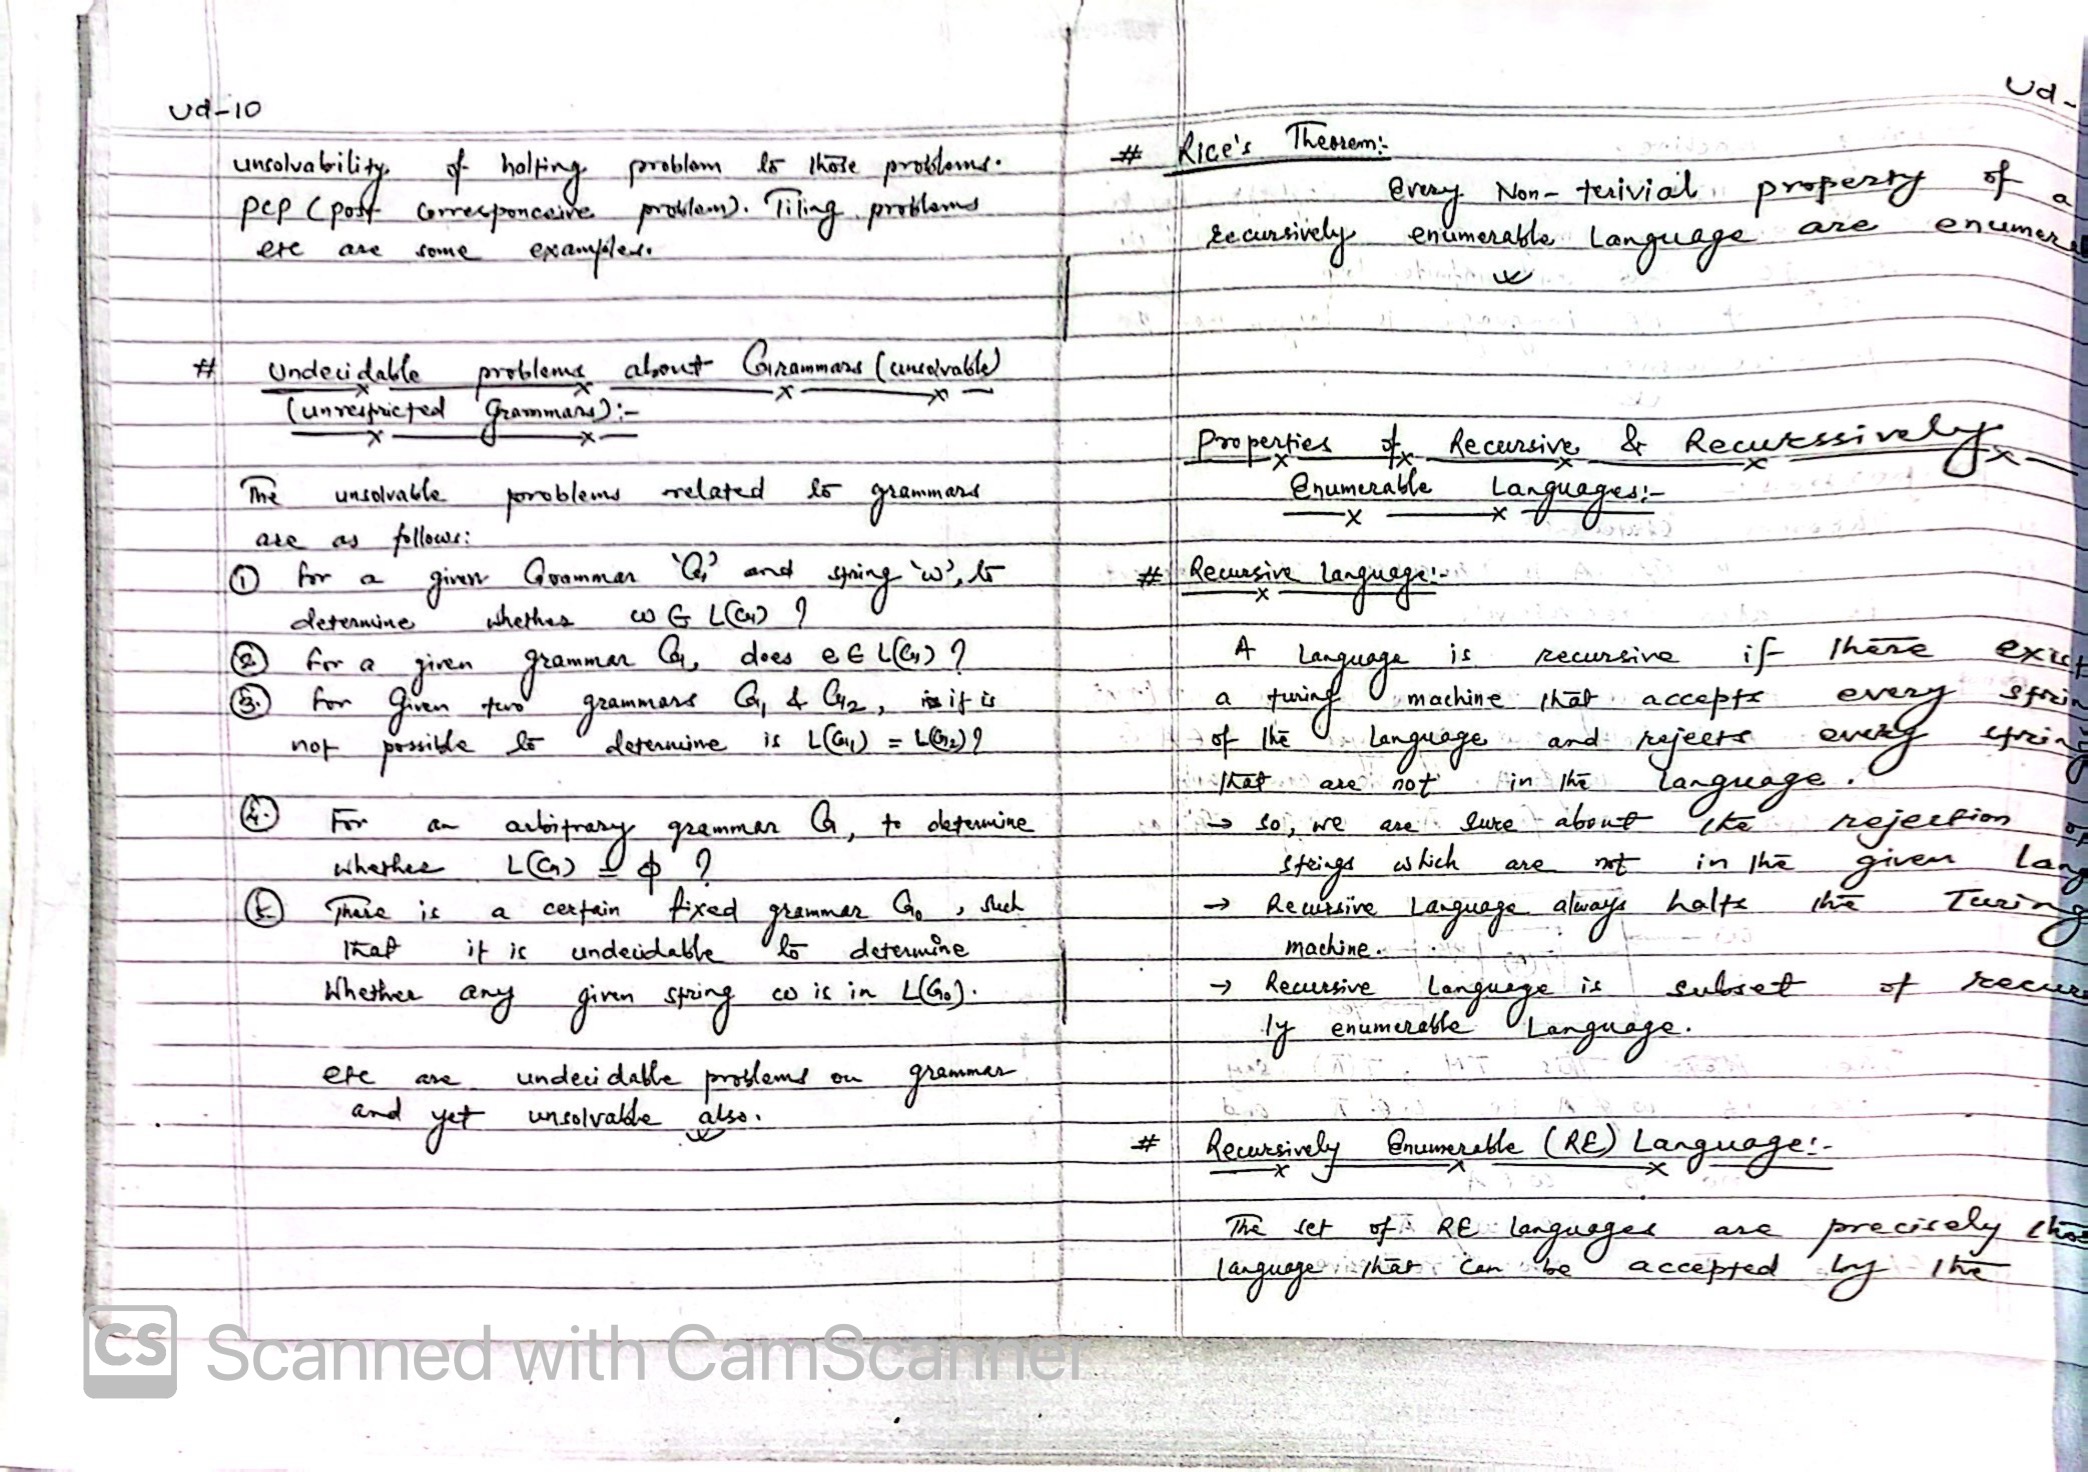 Ud-10
unsolvability of halting problem to those problems.
PCP (post corresponcaive problem). Tiling problems
etc are some examples.
# Undecidable problems about Grammars (unsolvable)
(unrespricted Grammars):-
The unsolvable problems related to grammars
are as follows:
① for a given Grammar 'G' and string 'w', to
determine whether w ∈ L(G) ?
② for a given grammar G, does e ∈ L(G) ?
③. for Given two grammars G1 & G2, it is
not possible to determine is L(G1) = L(G2) ?
④. For an arbitrary grammar G, to determine
whether L(G) = ϕ ?
⑤. There is a certain fixed grammar G0, such
that it is undecidable to determine
Whether any given string w is in L(G0).
etc are undecidable problems on grammar
and yet unsolvable also.
Ud-
# Rice's Theorem:-
Every Non-terivial property of a
recursively enumerable Language are enumera
Properties of Recursive & Recurssively
Enumerable Languages:-
# Recursive Language:-
A Language is recursive if there exist
a turing machine that accepts every strin
of the Language and rejects every string
that are not in the Language.
→ so, we are sure about the rejection of
strings which are not in the given Lang
→ Recursive Language always halts the Turing
machine.
→ Recursive Language is subset of recurs
ly enumerable Language.
# Recursively Enumerable (RE) Language:-
The set of RE languages are precisely thos
language that can be accepted by the
CS Scanned with CamScanner